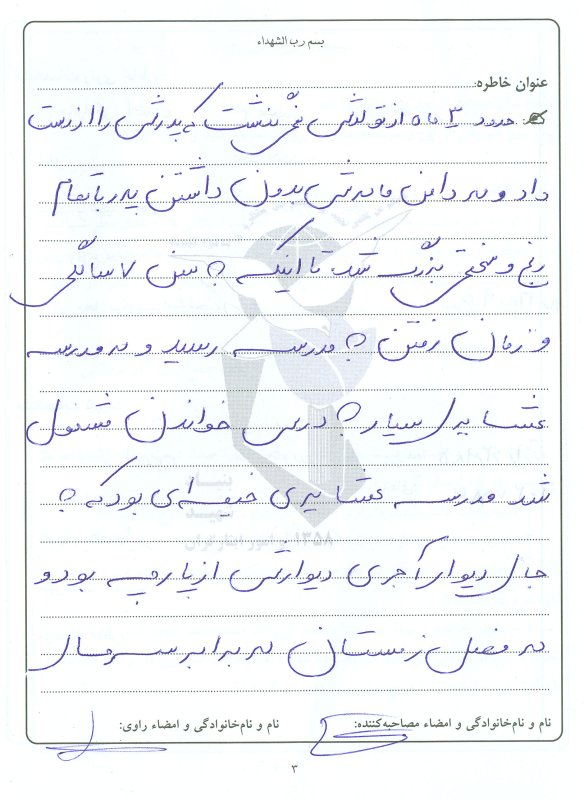 بسم رب الشهداء
عنوان خاطره:
حدود ۳ ماه از تولدش نمی گذشت که پدرش را از دست
داد و در دامن مادرش بدون داشتن پدر با تمام
رنج و سختی بزرگ شد، تا اینکه به سن ۷ سالگی
و زمان رفتن به مدرسه رسید و در مدرسه
عشایری سیار به درس خواندن مشغول
شد مدرسه عشایری خیمه ای بود که به
جای دیوار آجری دیوارش از پارچه بود و
در فصل زمستان در برابر سرمای
نام و نام‌خانوادگی و امضاء مصاحبه‌کننده:
نام و نام‌خانوادگی و امضاء راوی:
۳
بنیاد
شهید
و امور ایثارگران
۱۳۵۸